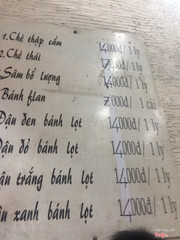 1.Chè thập cẩm 14,000đ/ 1 ly
2.Chè thái 000đ/ 1 ly
Sâm bổ lượng 14,000đ/ 1 ly
Bánh flan 7,000đ/ 1 cái
Đậu đen bánh lọt 14,000đ/ 1 ly
Đậu đỏ bánh lọt 14,000đ/ 1 ly
ậu trắng bánh lọt 14,000đ/ 1 ly
ậu xanh bánh lọt 14,000đ/ 1 ly